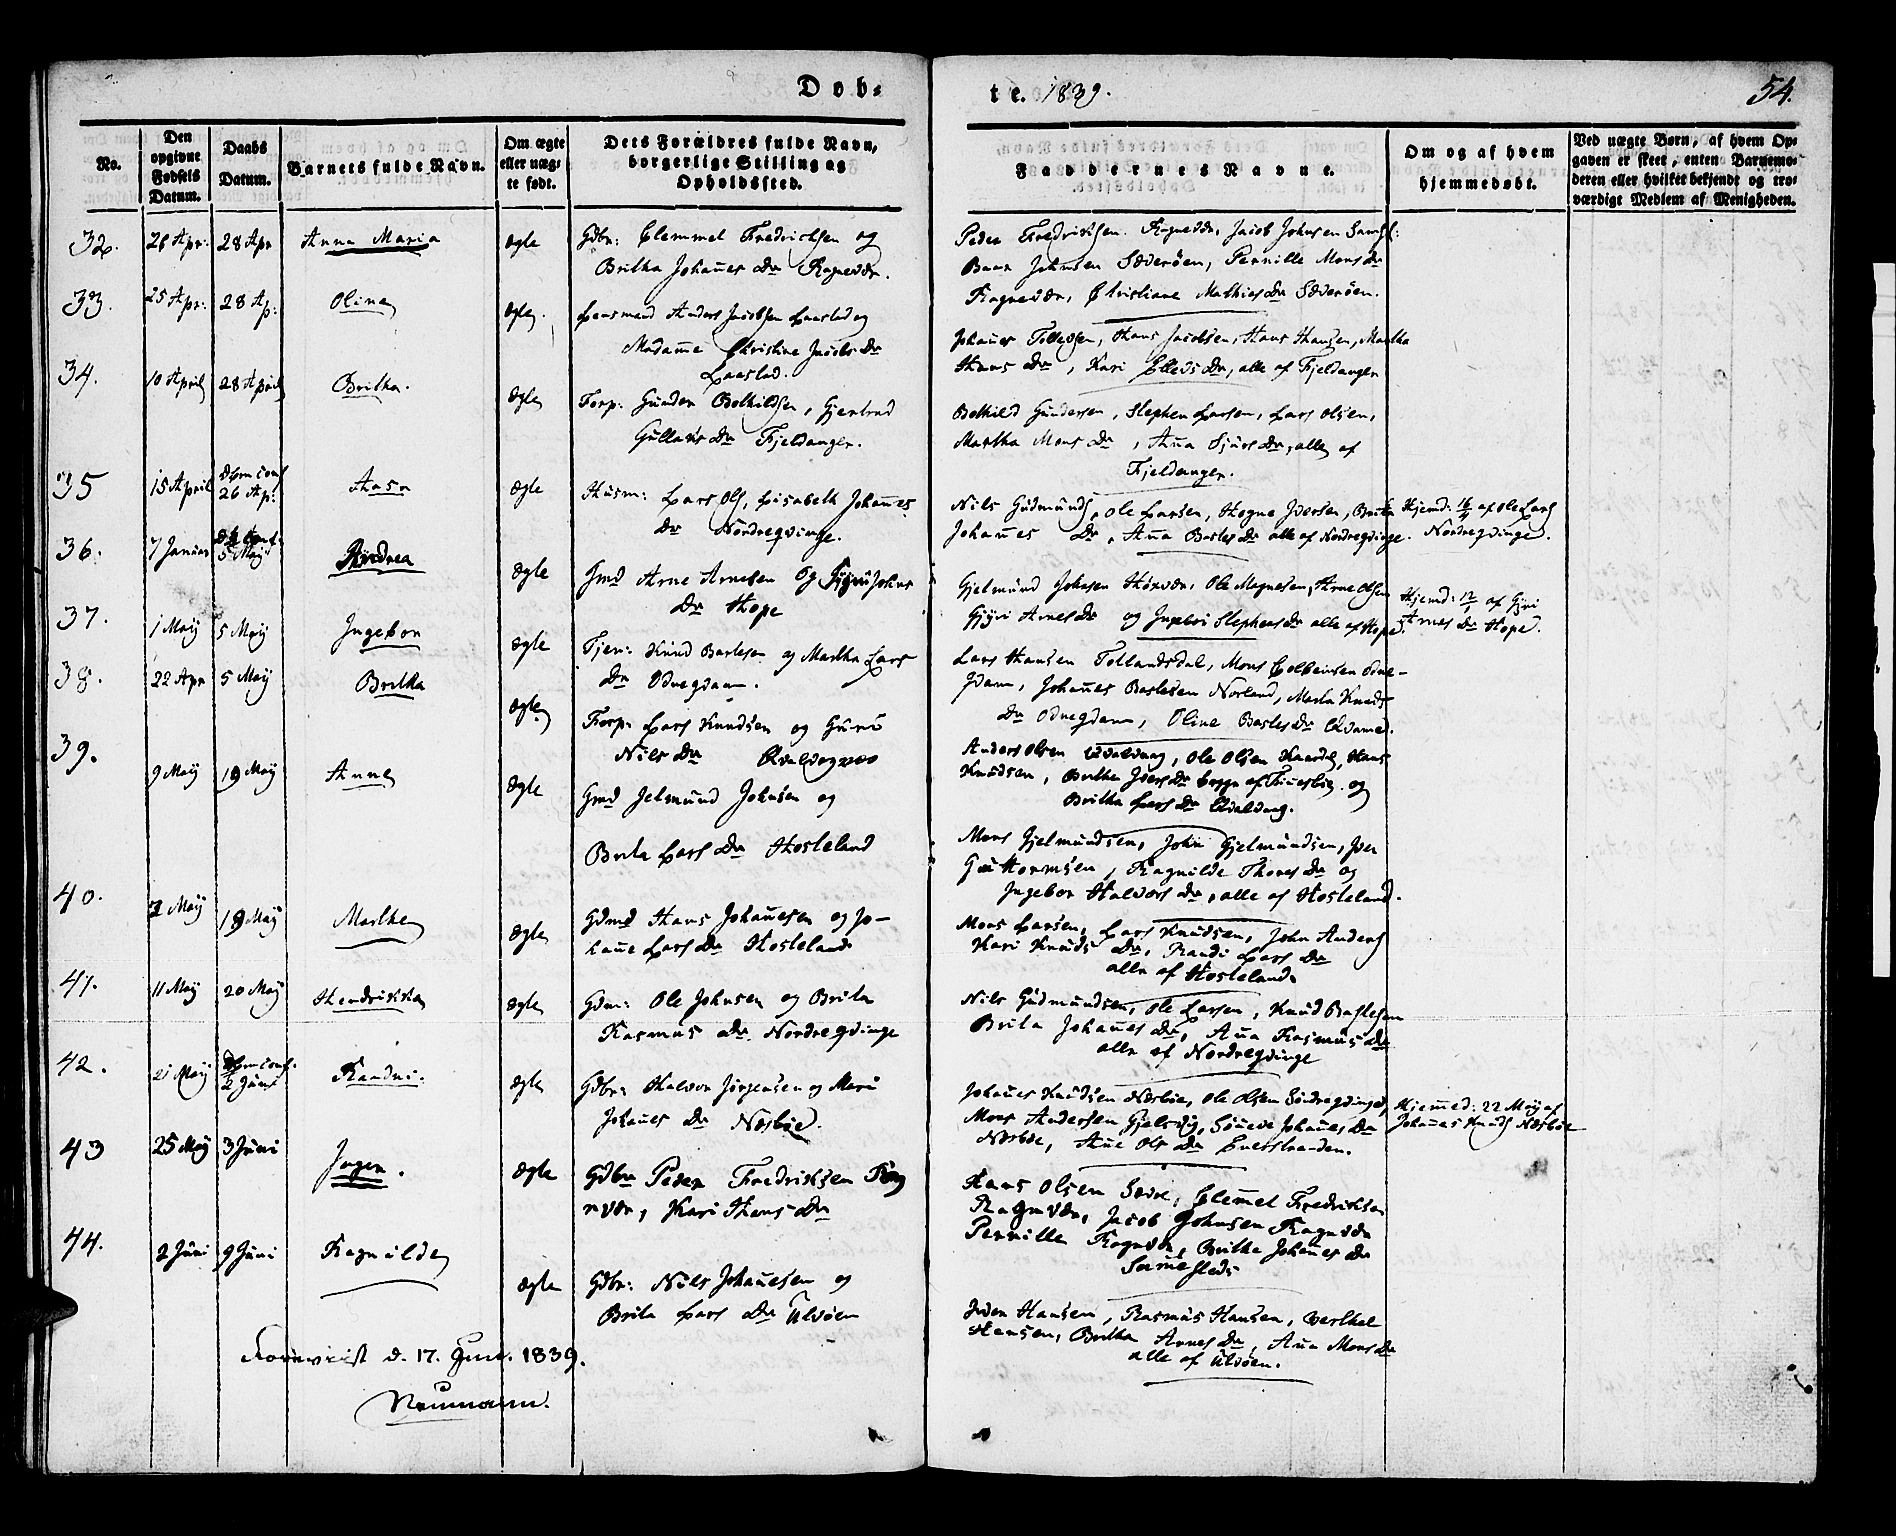 Døb-
te. 1839.
54.
No.
Den opgivne Fødsels Datum.
Daabs Datum.
Barnets fulde Navn.
Om ægte eller uægte født.
Dets Forældres fulde Navn, borgerlige Stilling og Opholdssted.
Faddernes Navne.
Om og af hvem hjemmedøbt.
Ved uægte Børn, af hvem Opgaven er skeet, enten Barnemoderen eller hvilket bekjendt og troværdigt Medlem af Menigheden.
32. 26 Apr: 28 Apr Anna Maria ægte Gdbr: Clemmet Fredrichsen og
Britha Johannes Dr Ragnevær.
Peder Fredriksen Ragnevær, Jacob Johnsen
Johnsen Sæderøen, Pernille Mons Dr
Ragnevær, Christiane Mathias Dr Sæderøen.
33. 25 Apr: 28 Ap: Oline ægte. Lensmand Anders Jacobsen Laastad og
Madame Christine Jacobs Dr
Laastad.
Johannes Tollevsen, Hans Jacobsen, Hans Hansen, Martha
Hans Dr, Kari Ellevs Dr, alle af Fjeldanger
34. 10 April 28 April Britha. ægte Forp: Gunder Bothildsen, Gjertrud
Gullaks Dr Fjeldanger.
Bothild Gundersen, Stephen Larsen, Lars Olsen,
Martha Mons Dr, Anna Sjurs Dr, alle af
Fjeldanger.
35 15 April 26 Ap: ægte Husm: Lars Ols, Lisabeth Johannes
Dr Nordreqvinge.
Nils Gudmunds, Ole Larsen, Hogne Iversen, Brita
Johannes Dr, Anna Bastes Dr alle af Nordreqvinge.
Hjemd: af Ole Lars
Nordreqvinge.
36. 7 Januar 5 May Andrea ægte Gmd Arne Arnesen og Johns
Dr Hope
Gjelmund Johnsen Ole Magnesen, Arne Olsen
Gjyri Arnes Dr og Ingebor Stephens Dr alle af Hope.
Hjemd: 12/1 af Gjyri
Arnes Dr Hope.
37. 1 May 5 May Ingebor ægte Tjen: Knud Bastesen og Martha Lars
Dr Odnegdam.
Lars Hansen Tollandsdal, Mons Colbeinsen Odne-
gdam, Johannes Bastesen Norland, Marta Knuds
Dr Odnegdam, Oline Bastes Dr
38. 22 Apr 5 May Britha ægte. Forp: Lars Knudsen og Guru
Nils Dr
Anders Olsen Ole Olsen Hans
Knudsen, Britha Ivers Dr begge af og
Britha Lars Dr
39. 9 May 19 May Anne ægte Gmd Jelmund Johnsen og
Brita Lars Dr Hosteland
Mons Gjelmundsen, John Gjelmundsen, Iver
Guttormsen, Ragnilde Thores Dr og
Ingebor Halvors Dr, alle af Hosteland.
40. May 19 May Marthe ægte Gdmd Hans Johannesen og Jo-
hanne Lars Dr Hosteland
Mons Larsen, Lars Knudsen, John Anders
Kari Knuds Dr, Randi Lars Dr
alle af Hosteland.
41. 11 May 20 May Hendrikka ægte Gdm: Ole Johnsen og Brita
Rasmus Dr. Nordreqvinge
Nils Gudmundsen, Ole Larsen, Knud Bastesen
Brita Johannes Dr, Anna Rasmus Dr
alle af Nordreqvinge
42. 21 May 2 Juni ægte Gdbr: Halvor Jørgensen og Mari
Johannes Dr Næsbøe.
Johannes Knudsen Næsbøe, Ole Olsen Søndreqvinge,
Mons Andersen Gjelsvig, Johannes Dr
Næsbøe, Ane Ols Dr
Hjemmed: 22 May af
Johannes Knuds Næsbøe
43 25 May 3 Juni ægte Gdbr Peder Fredriksen Rag
nvær, Kari Hans Dr
Hans Olsen Clemmet Fredriksen
Ragnvær, Jacob Johnsen Ragnvær
Pernille Ragnvær, Britha Johannes Dr
Sammesteds
44. 2 Juni 9 Juni Ragnilde ægte Gdbr: Nils Johannesen og
Brita Lars Dr Ulvøen
Iver Hansen, Rasmus Hansen, Berthel
Hansen, Britha Arnes Dr, Anna Mons Dr
alle af Ulvøen.
d. 17. Juni. 1839.
Neumann.